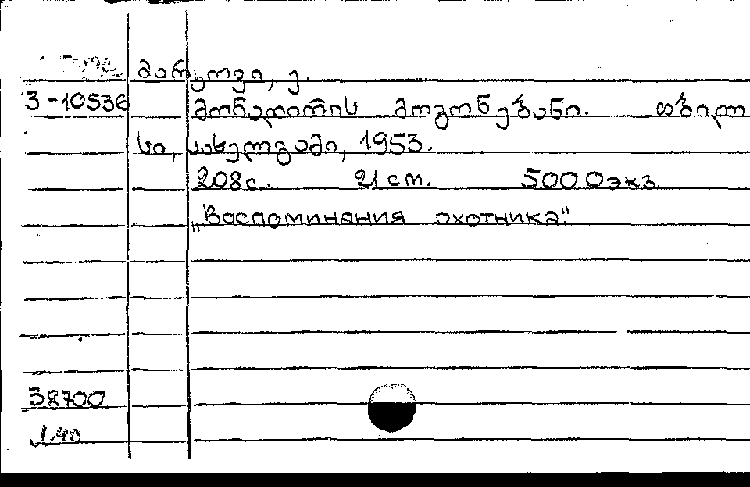 მარკოვი, ე.
3-10536 მონადირის მოგონებანი. თბილ
სი, სახელგამი, 1953.
208с. 21 см. 5000экз
„Воспоминания охотника“
38700